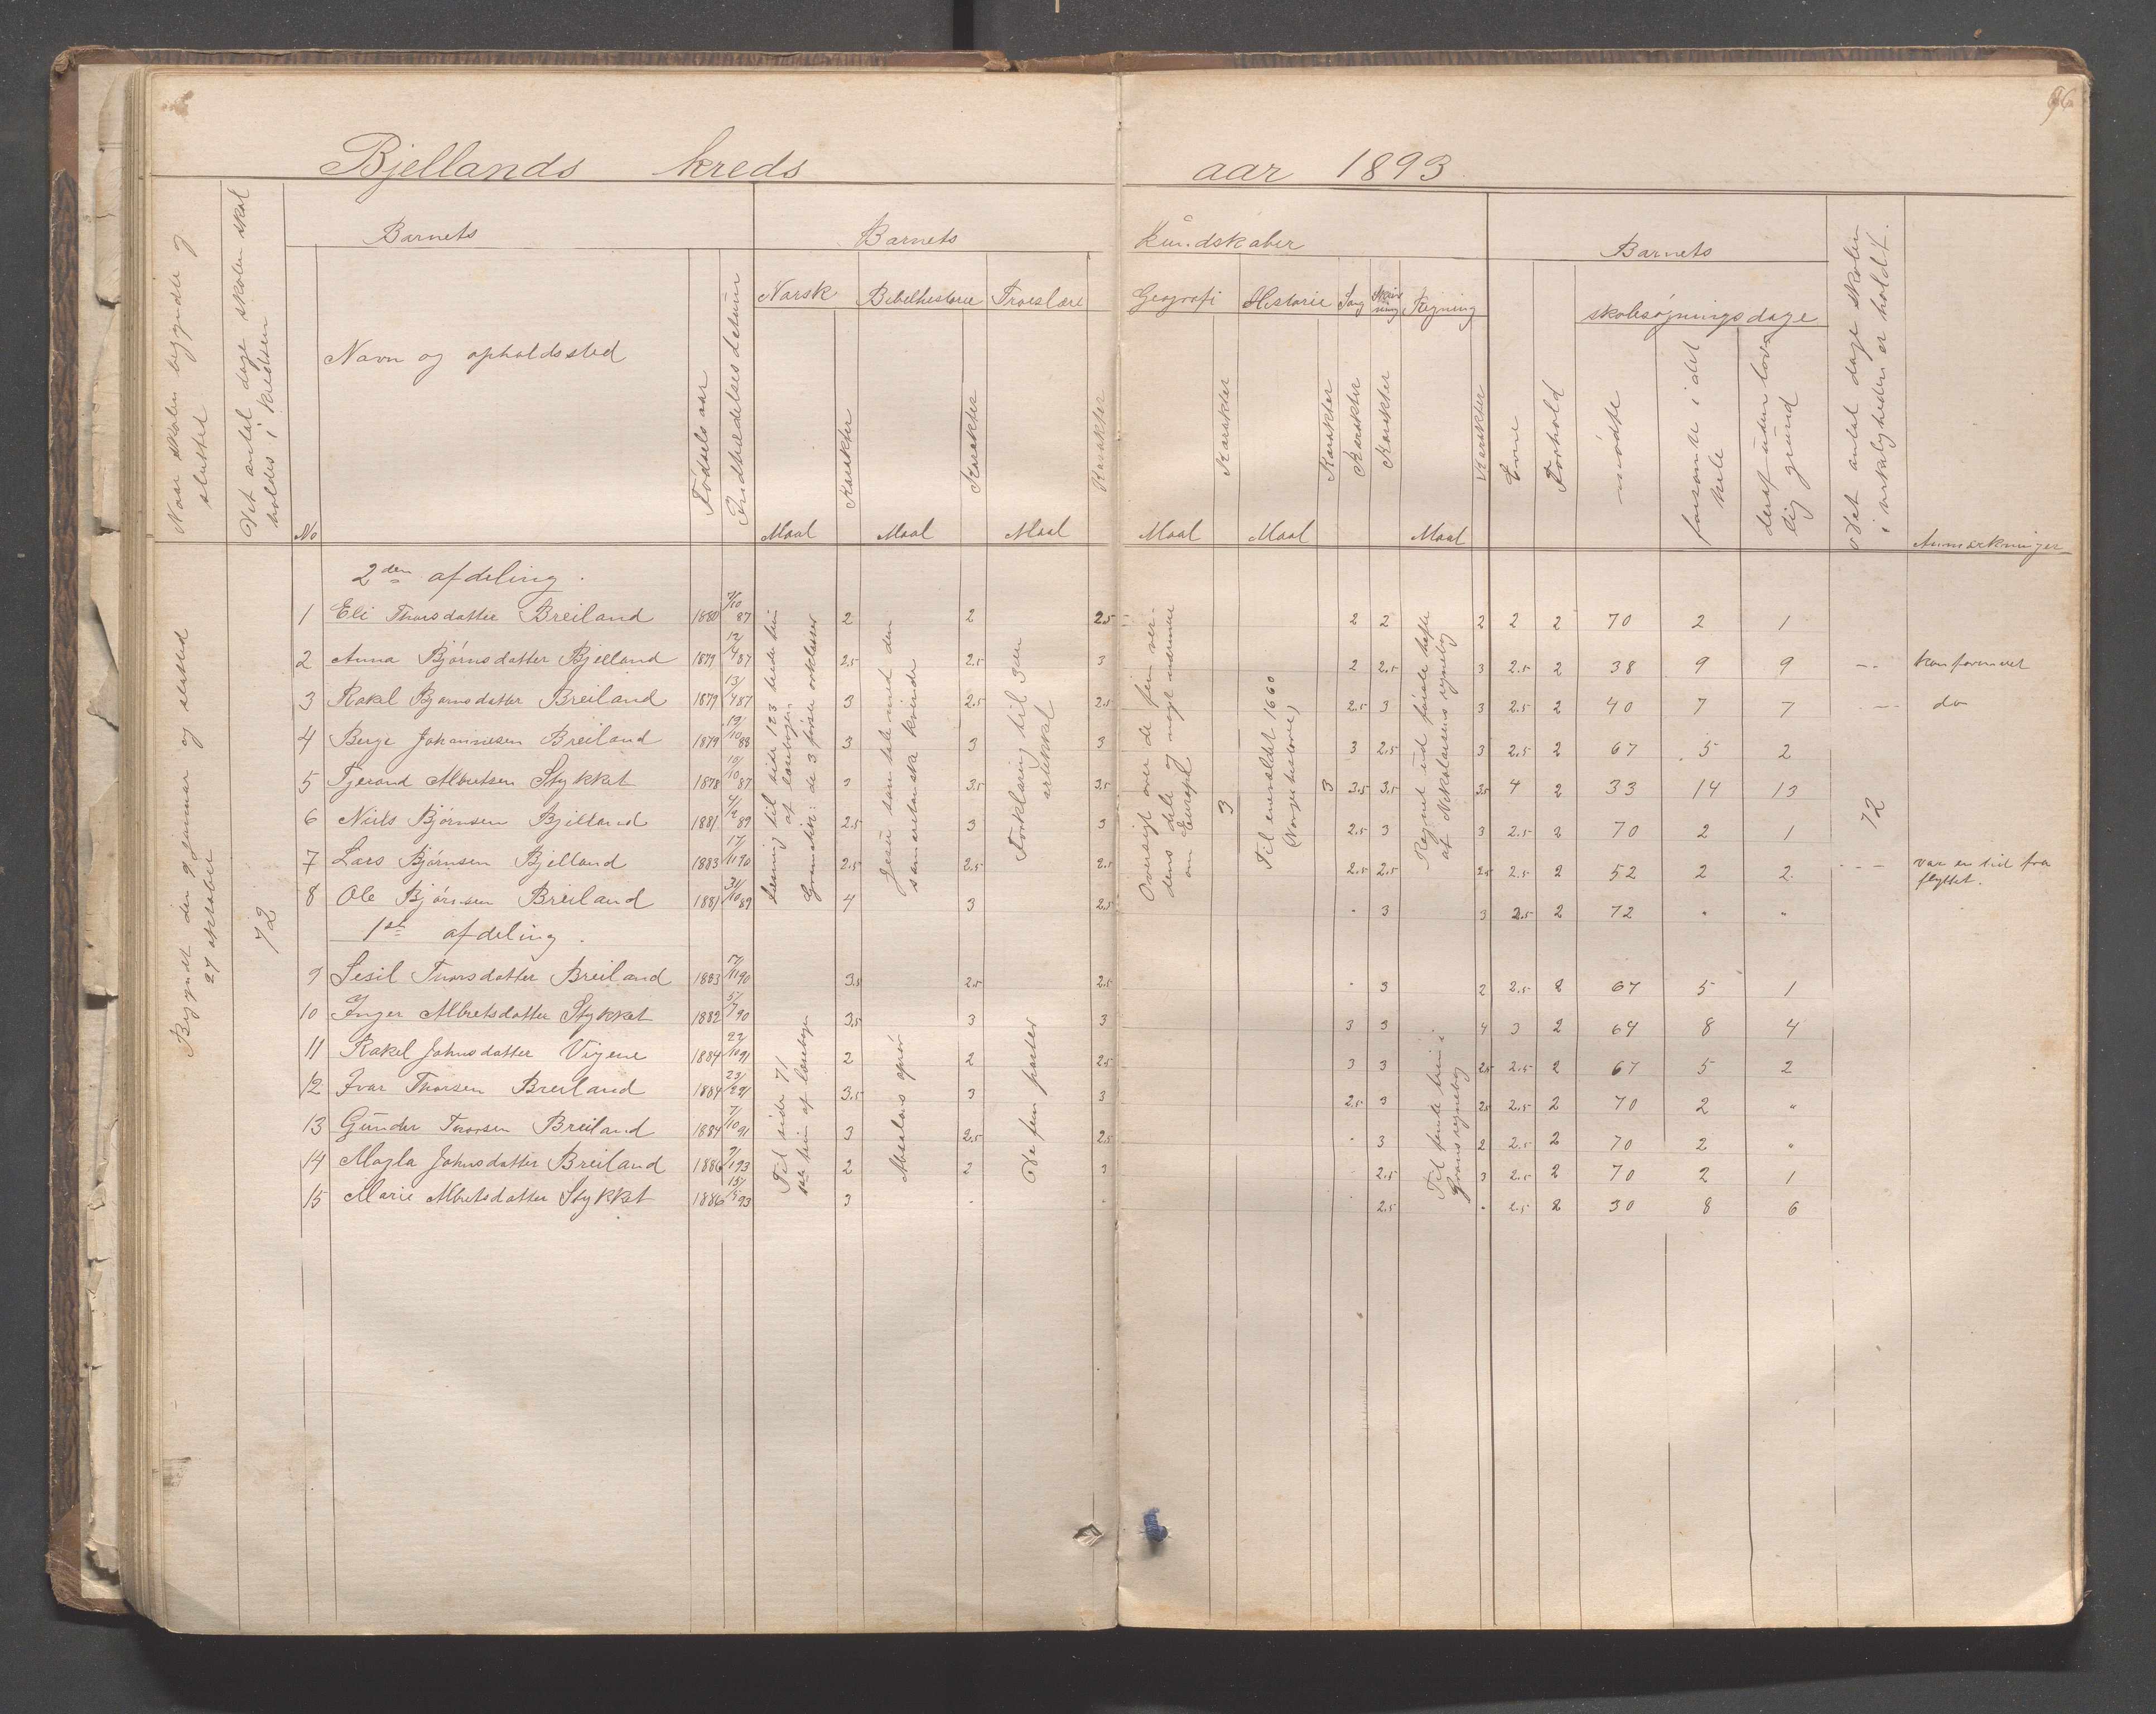 96
Bjellands kreds aar 1893
Naar skolen begyndte og sluttet
Det antal dage skolen skal holdes i kredsen
No
Barnets
Navn og opholdssted
Fødsels aar
Indtrædelses datum
Barnets Kundskaber
Norsk
Maal
Karakter
Bibelhistorie
Maal
Karakter
Troeslære
Maal
Karakter
Geografi
Maal
Karakter
Historie
Maal
Karakter
Sang
Karakter
Skrivning
Karakter
Regning
Maal
Karakter
Barnets
Evne
Forhold
skolesøgningsdage
mødte
forsømte i det hele
deraf uden lovlig grund
Det antal dage skolen i virkeligheden er holdt.
Anmærkninger
Begyndt den 9 januar og slutted
27 oktober
72
2den afdeling.
1 Eli Thorsdatter Breiland 1880 7/10 87 2 2 2.5 2 2 2 2 2 70 2 1
2 Anna Bjørnsdatter Bjelland 1879 12/4 87 2.5 2.5 3 2 2.5 3 2.5 2 38 9 9 konfirmeret
3 Rakel Bjørnsdatter Breiland 1879 13/4 87 3 2.5 2.5 2.5 3 3 2.5 2 40 7 7 do
4 Berge Johannesen Breiland 1879 19/10 88 3 3 3 3 2.5 3 2.5 2 67 5 2
5 Tjerand Albretsen Stykket 1878 10/10 87 3 3.5 3.5 3.5 3.5 3.5 4 2 33 14 13
6 Niels Bjørnsen Bjelland 1881 4/2 89 2.5 3 3 2.5 3 3 2.5 2 70 2 1
7 Lars Bjørnsen Bjelland 1883 17/11 90 2.5 2.5 2.5 2.5 2.5 2.5 2.5 2 52 2 2 var en tid fra flyttet.
8 Ole Bjørnsen Breiland 1881 31/10 89 4 3 2.5 - 3 3 2.5 2 72 " "
Læsning til side 123 tredie trin
af læsebogen
Gramatik: de 3 første ordklasser
Jesus samtale med den
samaritanske kvinde
Forklaring til 3die
artikkel
Oversigt over de fem ver-
dens dele og noget nærmere
om Europa
3
Til enevældet 1660
(Norgeshistorie)
3
Regnet ud første hefte
af Nikolaisens regnebog
72
1ste afdeling.
9 Sesil Thorsdatter Breiland 1883 17/11 90 3.5 2.5 2.5 - 3 2 2.5 2 67 5 1
10 Inger Albretsdatter Stykket 1882 5/7 90 3.5 3 3 3 3 4 3 2 64 8 4
11 Rakel Johnsdatter Vigene 1884 22/10 91 2 2 2.5 3 3 2.5 2.5 2 67 5 2
12 Ivar Thorsen Breiland 1884 23/2 91 3.5 3 3 2.5 3 2.5 2.5 2 70 2 "
13 Gunder Thorsen Breiland 1884 7/10 91 3 2.5 2.5 - 3 2 2.5 2 70 2 "
14 Magla Johnsdatter Breiland 1886 9/1 93 2 2 3 - 2.5 3 2.5 2 70 2 1
15 Marie Albretsdatter Stykket 1886 93 3 - - - 2.5 - 2.5 2 30 8 6
Til side 71
trin af læsebogen
Absalons oprør
De fem parter
Til femte trin i
regnebog